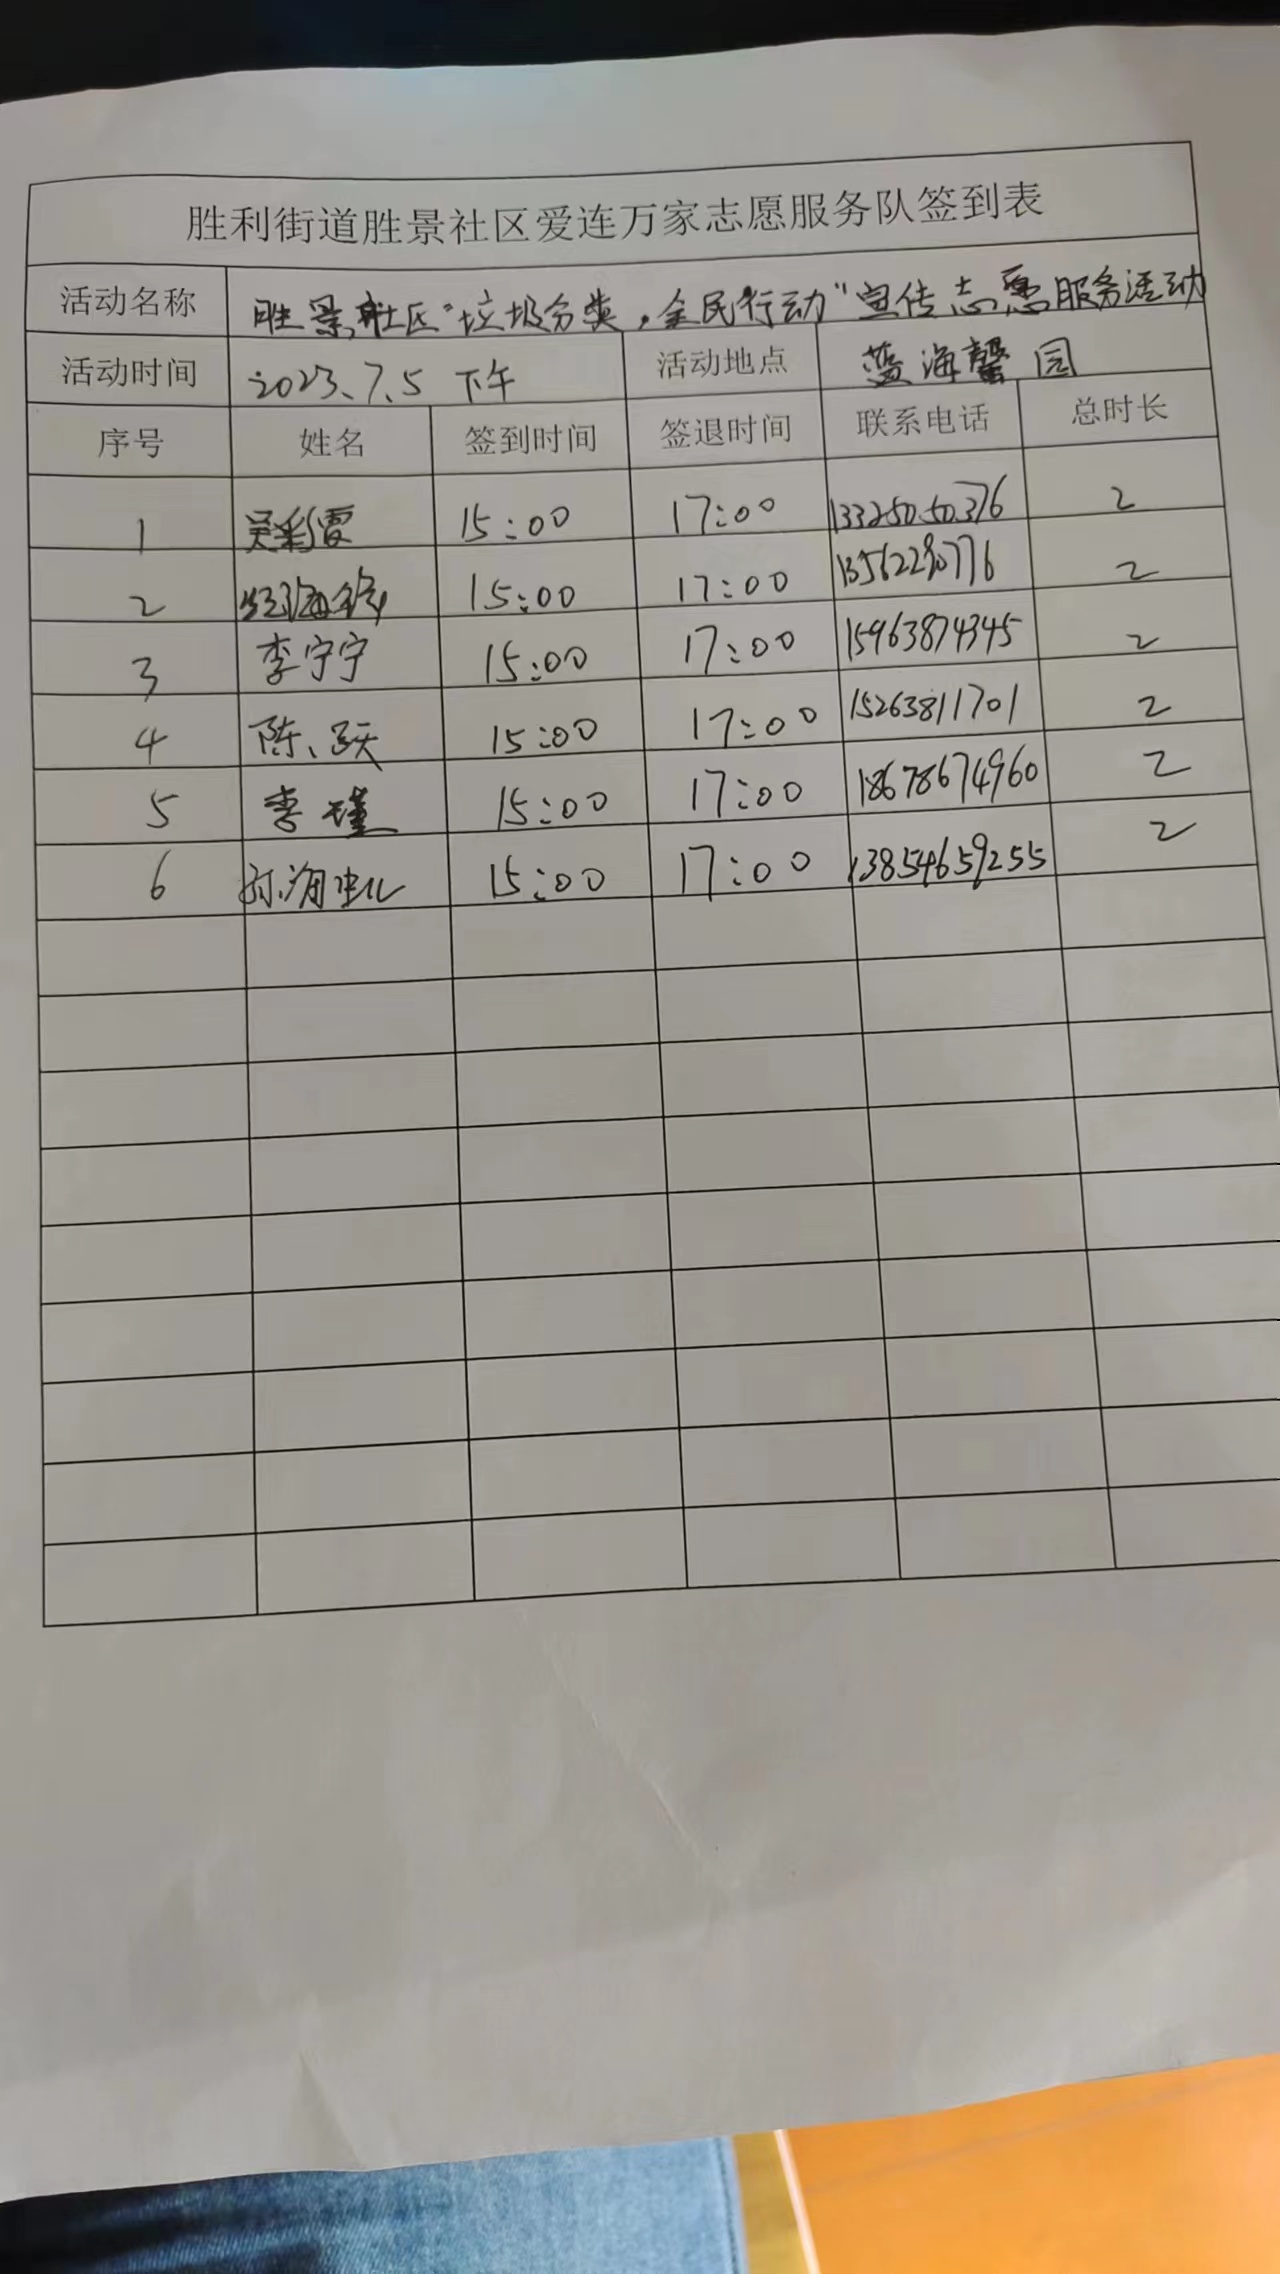 胜利街道胜景社区爱连万家志愿服务队签到表
活动名称 胜景社区"垃圾分类,全民行动"宣传志愿服务活动
活动时间 2023.7.5 下午 活动地点 蓝海馨园
序号 姓名 签到时间 签退时间 联系电话 总时长
1 吴彩霞 15:00 17:00 13325050376 2
2 15:00 17:00 13562290776 2
3 李宁宁 15:00 17:00 15963874345 2
4 陈跃 15:00 17:00 15263811701 2
5 李瑾 15:00 17:00 18678674960 2
6 15:00 17:00 13854659255 2